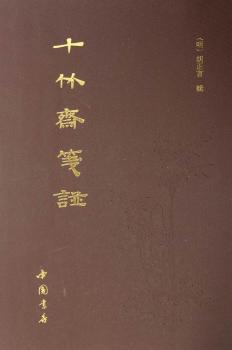 （明）胡正言 輯
十竹齋箋譜
中國書店